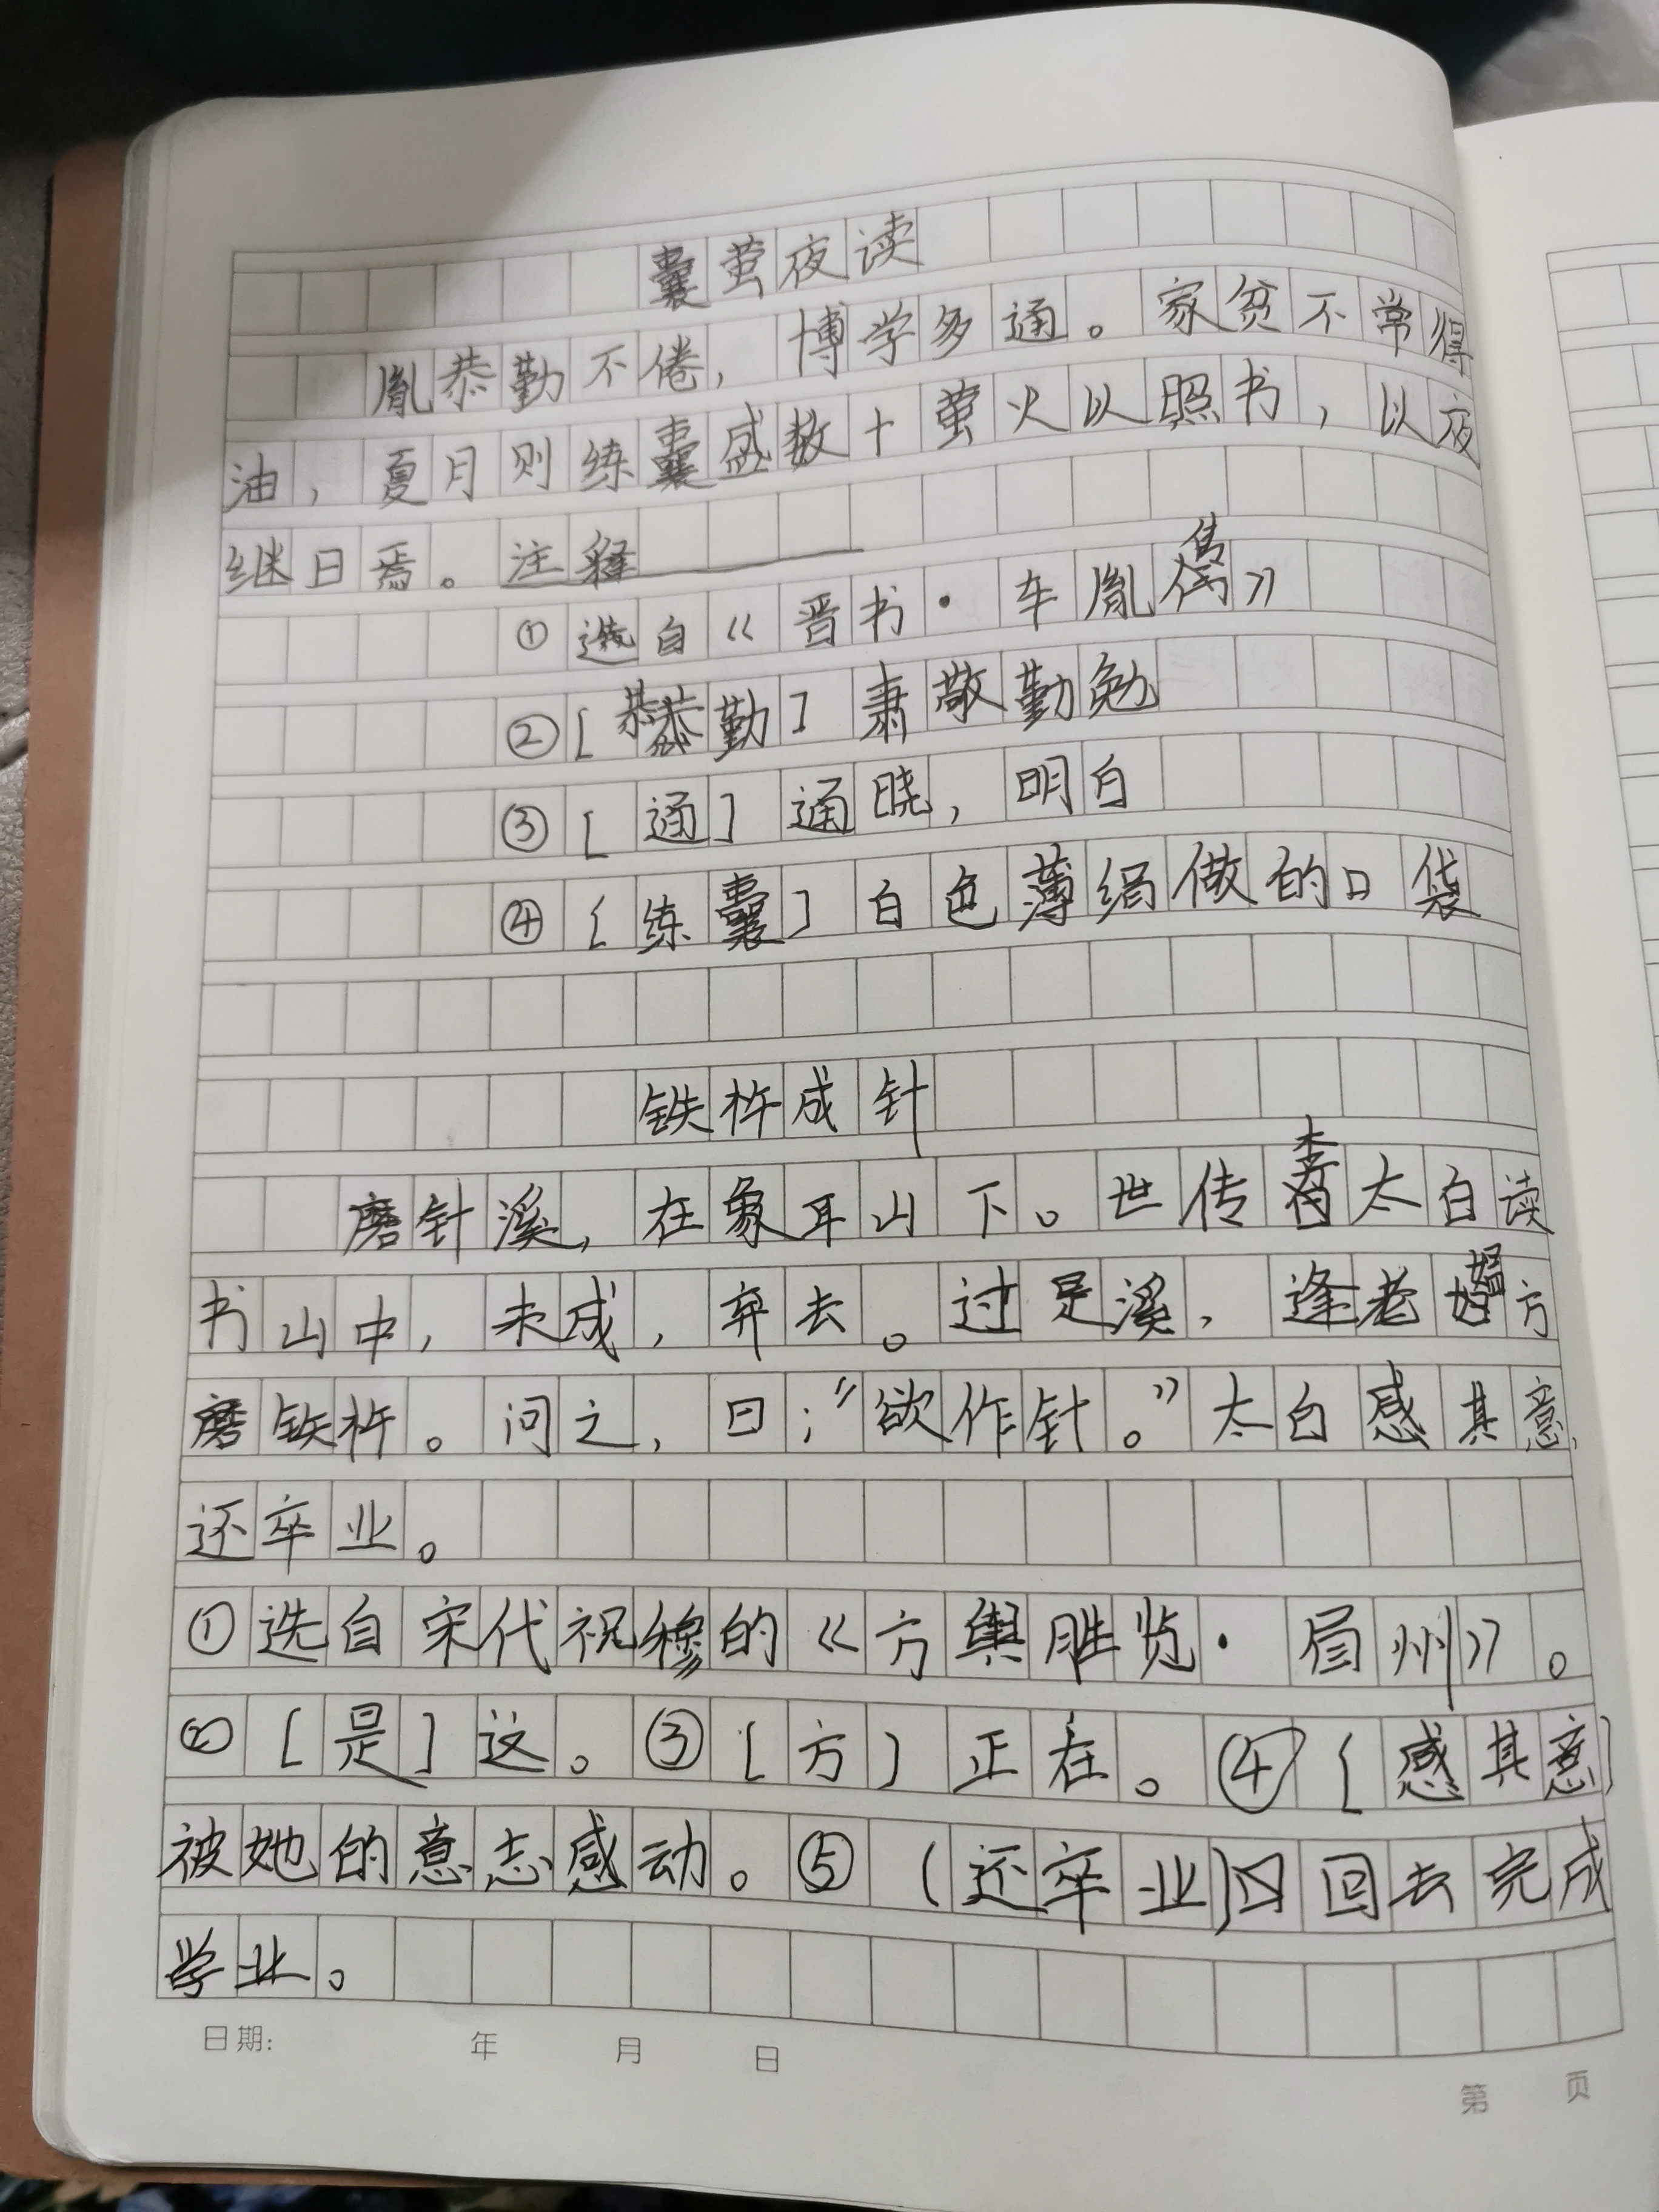 囊萤夜读
胤恭勤不倦，博学多通。家贫不常得
油，夏月则练囊盛数十萤火以照书，以夜
继日焉。注释
①选自《晋书·车胤传》
②[恭勤]肃敬勤勉
③[通]通晓，明白
④[练囊]白色薄绢做的口袋
铁杵成针
磨针溪，在象耳山下。世传李太白读
书山中，未成，弃去。过是溪，逢老媪方
磨铁杵。问之，曰：“欲作针。”太白感其意，
还卒业。
①选自宋代祝穆的《方舆胜览·眉州》。
②[是]这。③[方]正在。④[感其意]
被她的意志感动。⑤(还卒业]回去完成
学业。
日期: 年 月 日
第 页